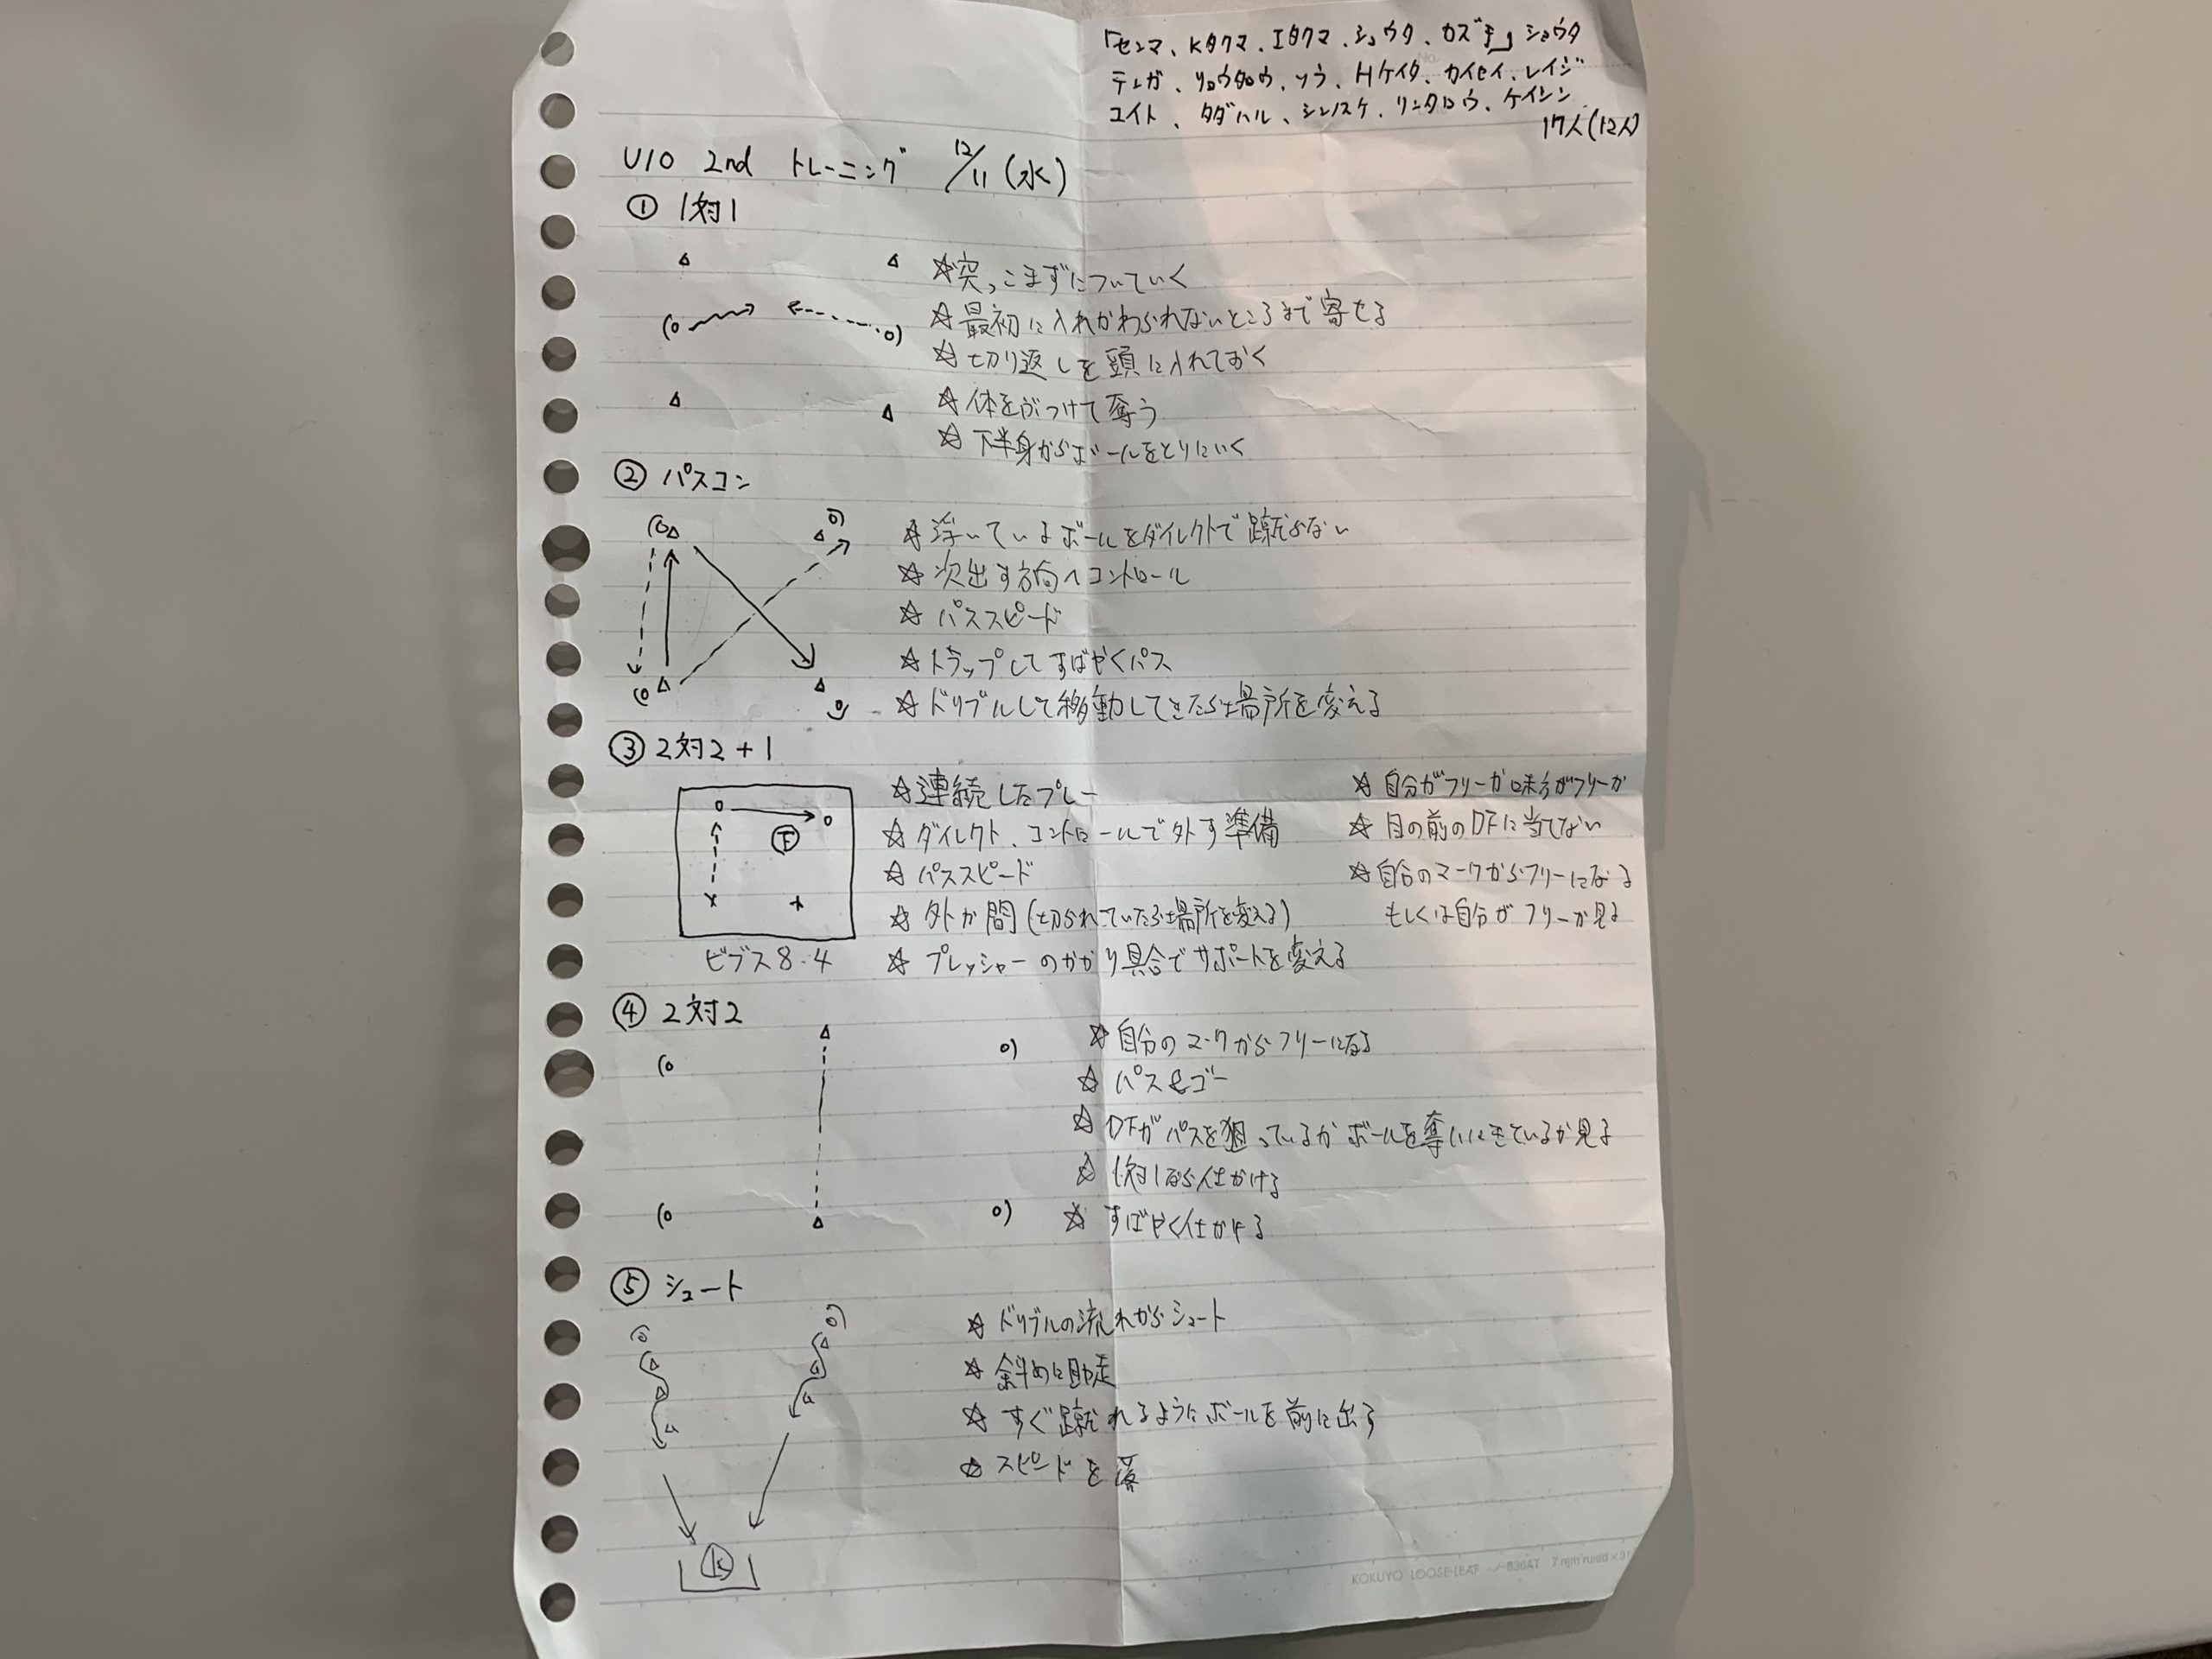 「センマ、Kタクマ、Iタクマ、ショウタ、カズキ」ショウタ
テンガ、リョウタロウ、ソウ、Hケイタ、カイセイ、レイジ
ユイト、タダハル、シンノスケ、リンタロウ、ケイシン
17人(12人)
U10 2nd トレーニング 12/11(水)
① 1対1
☆突っこまずについていく
☆最初に入れかわられないところまで寄せる
☆切り返しを頭に入れておく
☆体をぶつけて奪う
☆下半身からボールをとりにいく
② パスコン
☆浮いているボールをダイレクトで蹴らない
☆次出す方向へコントロール
☆パススピード
☆トラップしてすばやくパス
☆ドリブルして移動してきたら場所を変える
③ 2対2+1
☆連続したプレー
☆ダイレクト、コントロールで外す準備
☆パススピード
☆外か間(切られていたら場所を変える)
☆プレッシャーのかかり具合でサポートを変える
☆自分がフリーか味方がフリーか
☆目の前のDFに当てない
☆自分のマークからフリーになる
もしくは自分がフリーか見る
F
ビブス8.4
④ 2対2
☆自分のマークからフリーになる
☆パス&ゴー
☆DFがパスを狙っているかボールを奪いにきているか見る
☆1対1なら仕かける
☆すばやく仕かける
⑤ シュート
☆ドリブルの流れからシュート
☆斜めに助走
☆すぐ蹴れるようにボールを前に出す
☆スピードを落
K
KOKUYO LOOSE-LEAF ノ-836AT 7 mm ruled×31